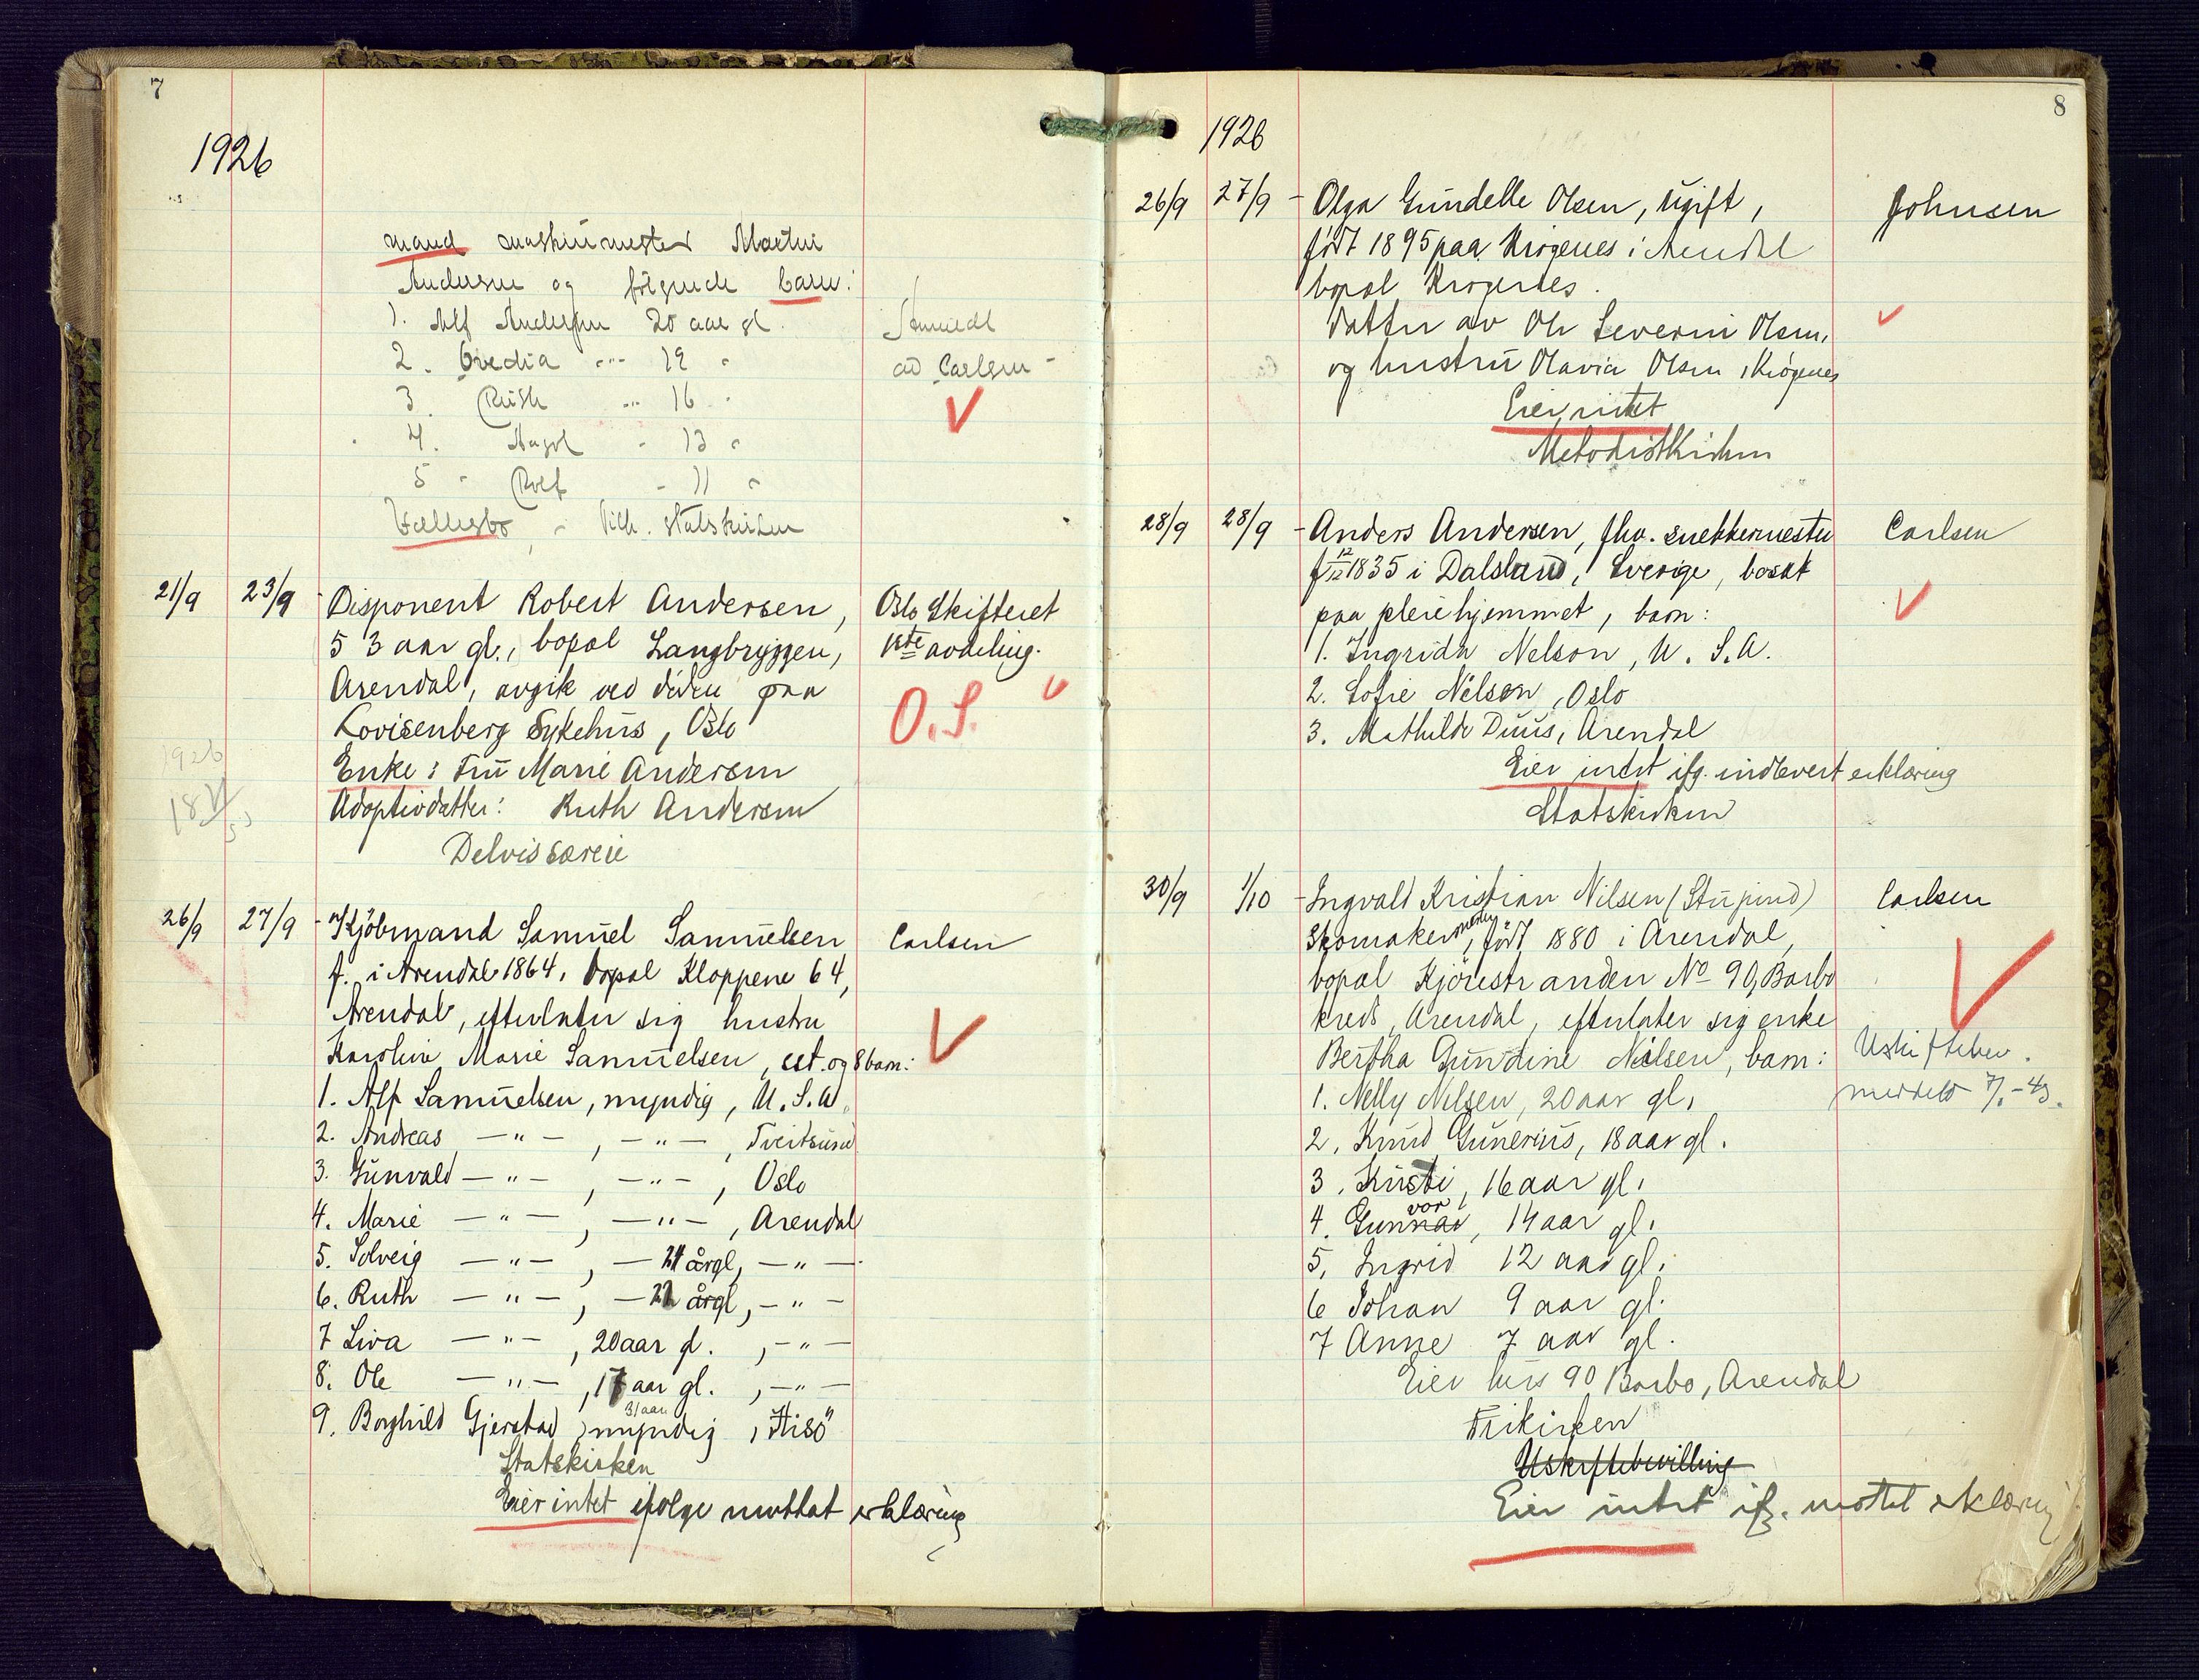 7
1926
mand maskinmester Martin
Andersen og følgende barn:
1. Alf Andersen 20 aar gl.
Anmeldt
2. Credia -"- 19 "
av Carlsen
3. Ruth -"- 16 "
4. - 13 "
5 " Rolf - 11 "
- Statskirken
21/9 23/9 - Disponent Robert Andersen,
Oslo Skifteret
53 aar gl., bopæl Langbryggen,
1ste avdeling.
Arendal, avgik ved døden paa
O.S.
Lovisenberg Sykehus, Oslo
Enke: Fru Marie Andersen
1926
Adoptivdatter: Ruth Andersen
Delvis særeie
26/9 27/9 - Kjøbmand Samuel Samuelsen
Carlsen
f. i Arendal 1864, bopæl Kloppene 64,
Arendal, efterlater sig hustru
Karoline Marie Samuelsen, og 8 barn:
1. Alf Samuelsen, myndig, U.S.A.
2. Andreas -"-, -"-, Tveitsund
3. Gunvald -"-, -"-, Oslo
4. Marie -"-, -"-, Arendal
5. Solveig -"-, - 24 år gl, -"-
6. Ruth -"-, - 22 år gl, -"-
7 Liva -"-, 20 aar gl. , -"-
8. Ole -"-, 17 aar gl. , -"-
31 aar
9. Borghild Gjerstad, myndig, Hisö
Statskirken
Eier intet ifølge mottat erklæring
8
1926
26/9 27/9 - Olga Gundelle Olsen, ugift,
Johnsen
født 1895 paa Krøgenes i Arendal
bopæl Krøgenes.
Datter av Ole Severin Olsen,
og hustru Olavia Olsen, Krøgenes
Eier intet
Metodistkirken
28/9 28/9 - Anders Andersen, fhv. snekkermester
Carlsen
f 12/12 1835 i Dalsland, Sverige, bosat
paa pleiehjemmet, barn:
1. Ingrida Nelson, U.S.A.
2. Sofie Nelson, Oslo
3. Mathilde Duus, Arendal
Eier intet ifg. indlevert erklæring
Statskirken
30/9 1/10 - Ingvald Kristian Nilsen (Stujund)
Carlsen
Skomakermester, født 1880 i Arendal,
bopæl Kjørestranden No 90, Barbo
kreds, Arendal, efterlater sig enke
Bertha Gundine Nilsen, barn:
Uskiftebev.
1. Nelly Nilsen, 20 aar gl,
meddelt
2. Knud Gunerius, 18 aar gl.
3. Kristi, 16 aar gl.
vor
4. Gunnar, 14 aar gl.
5. Ingrid 12 aar gl.
6 Johan 9 aar gl.
7 Anne 7 aar gl.
Eier hus 90 Barbo, Arendal
Frikirken
Uskiftebevilling
Eier intet ifg. mottat erklæring